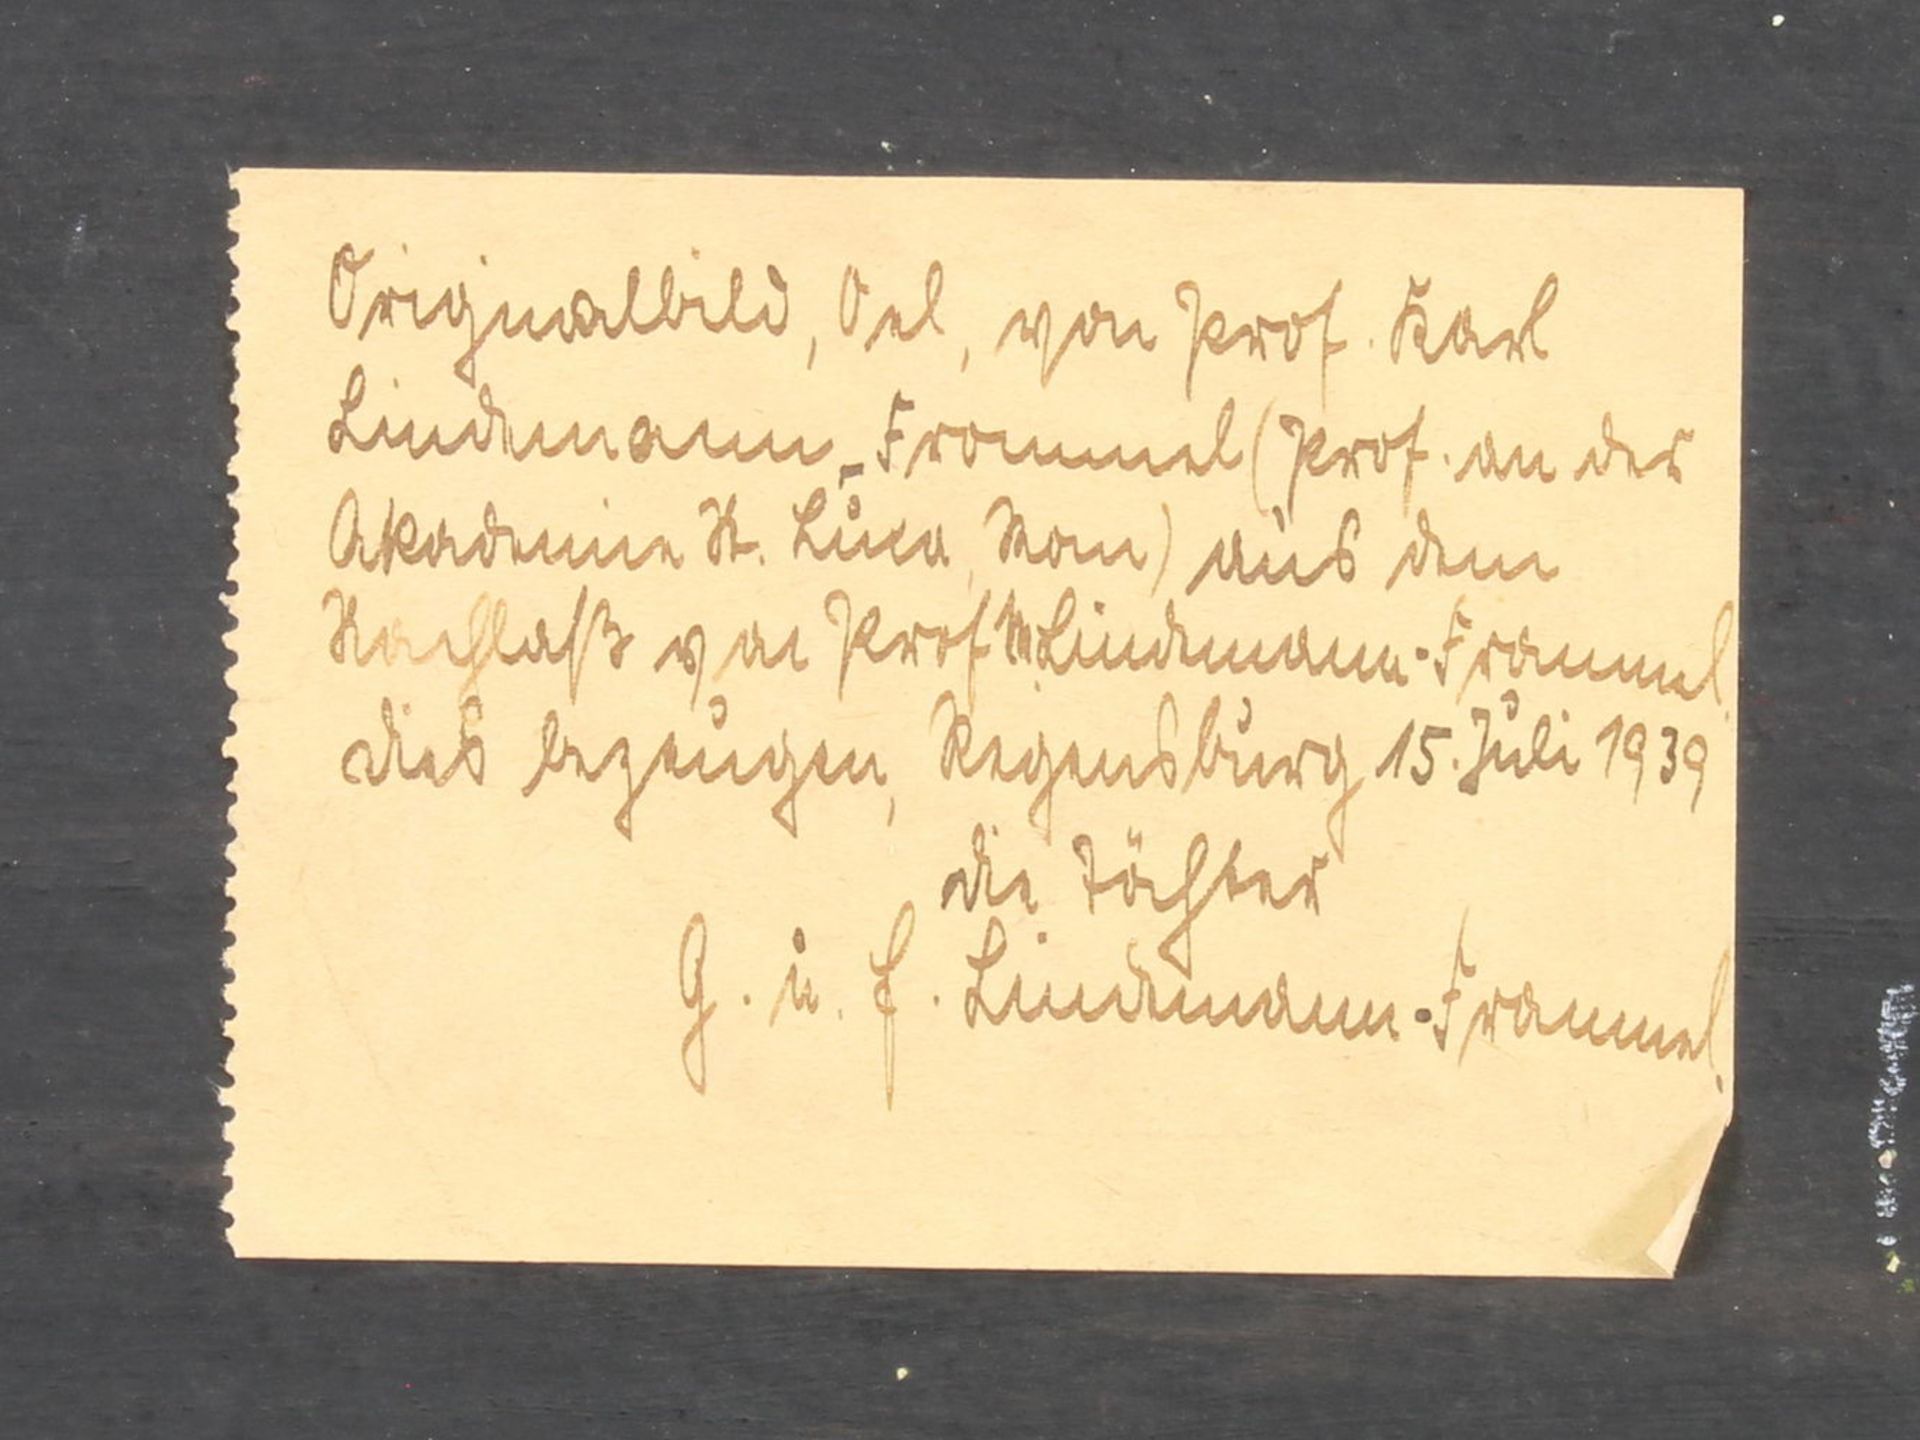 Originalbild, Oel, von Prof. Karl
Lindemann-Frommel (Prof. an der
Akademie St. Luca, Rom) aus dem
Nachlaß von Prof M. Lindemann-Frommel.
dies bezeugen, Regensburg 15. Juli 1939
die Töchter
G. u. f. Lindemann-Frommel.